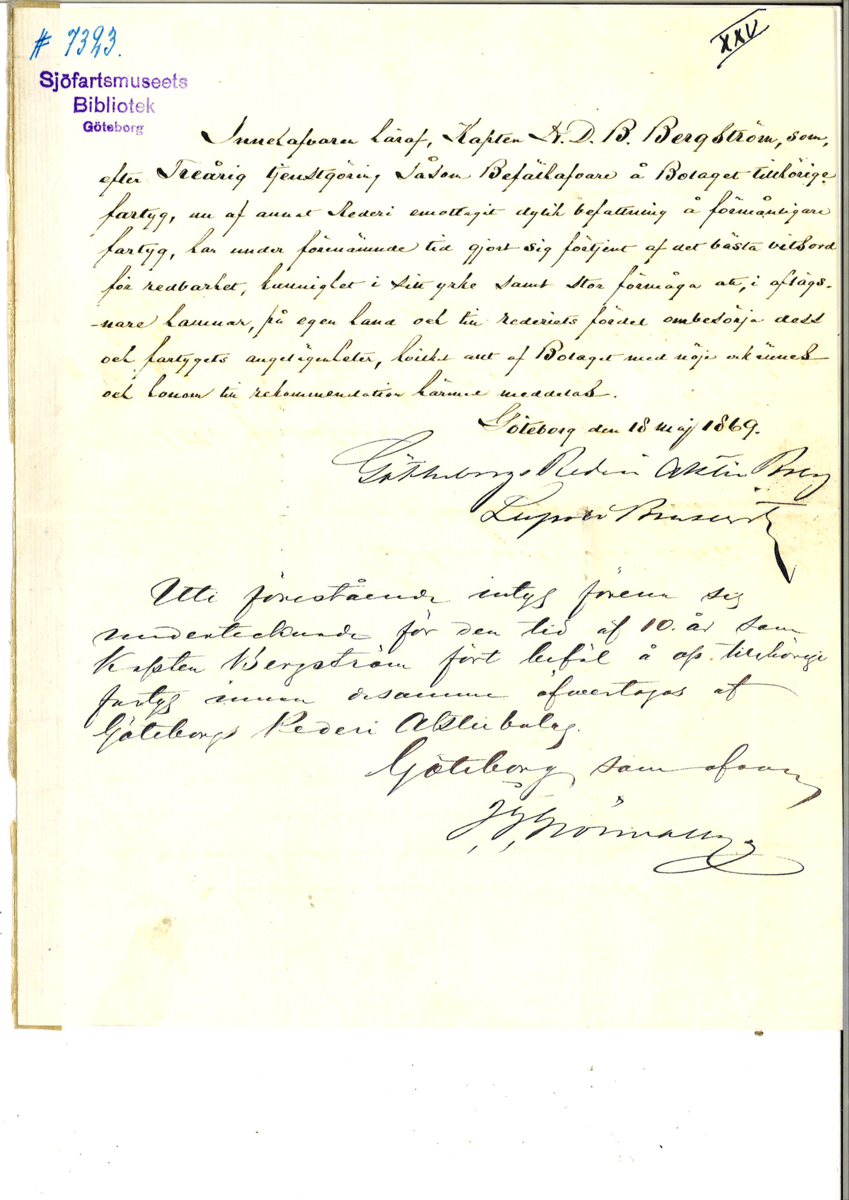 # 7323.
XXV
Sjöfartsmuseets
Bibliotek
Göteborg
Innehafvaren häraf, Kapten A. D. B. Bergström, som,
efter Treårig tjenstgöring Såsom Befälhafvare å Bolaget tillhörige
fartyg, nu af annat Rederi emottagit dylik befattning å förmånligare
fartyg, har under förenämnde tid gjort sig förtjent af det bästa vitsord
för redbarhet, kunnighet i sitt yrke samt stor förmåga att, i aflägs-
-nare hamnar, på egen hand och till rederiets fördel ombesörja dess
och fartygets angelägenheter, hvilket allt af Bolaget med nöje erkännes
och honom till rekommendation härmed meddelas.
Göteborg den 18 Maj 1869.
Götheborgs Rederi Aktie Bolag
Uti förestående intyg förena sig
undertecknade för den tid af 10. år som
Kapten Bergström fört befäl å oss tillhörige
fartyg innan desamma öfvertogos af
Göteborgs Rederi Aktiebolag.
Göteborg som ofvan